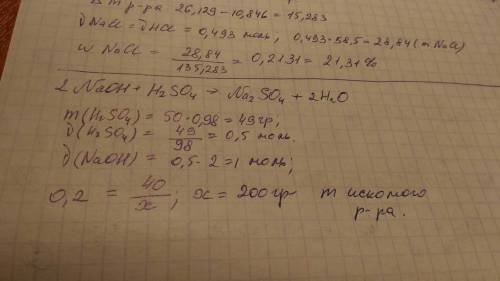 В m р-ра 26,129 - 10,846 = 15,283
∂ NaCl = ∂ HCl = 0,493 моль, 0,493·58,5 = 28,84 (m NaCl)
w NaCl = 28,84/135,283 = 0,2131 = 21,31 %
2 NaOH + H₂SO₄ → Na₂SO₄ + 2H₂O
m(H₂SO₄) = 50·0,98 = 49 гр;
∂(H₂SO₄) = 49/98 = 0,5 моль.
∂(NaOH) = 0,5·2 = 1 моль;
0,2 = 40/x; x = 200 гр m искомого
р-ра.